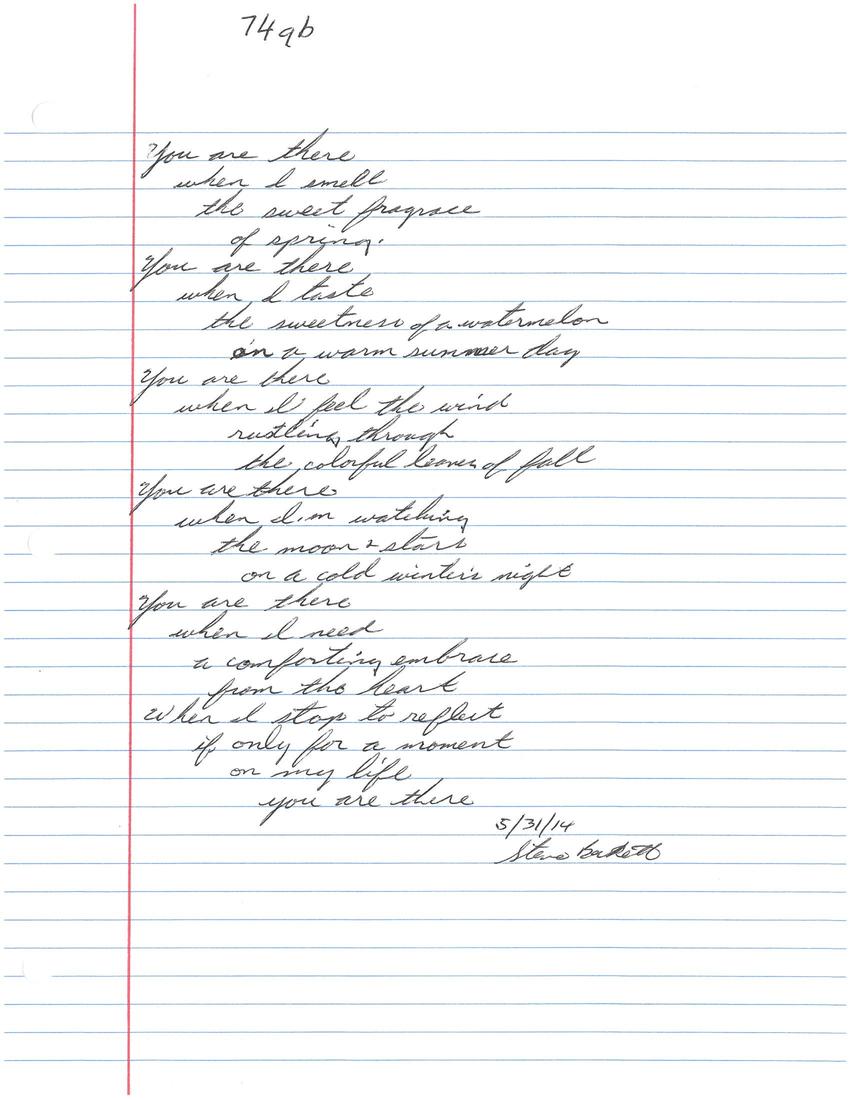 74qb
You are there
when I smell
the sweet fragrace
of spring.
You are there
when I taste
the sweetness of a watermelon
on a warm summer day
You are there
when I feel the wind
rustling through
the colorful leaves of fall
You are there
when I'm watching
the moon & stars
on a cold winter's night
You are there
when I need
a comforting embrace
from the heart
When I stop to reflect
if only for a moment
on my life
you are there
5/31/14
Steve